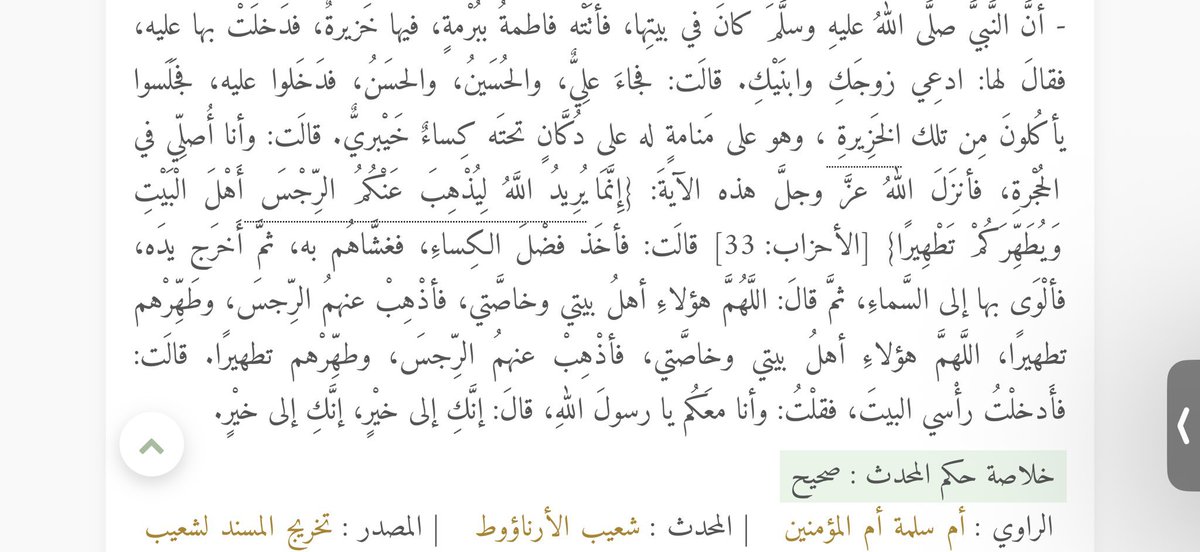 - أنَّ النَّبيَّ صلَّى اللهُ عليهِ وسلَّمَ كانَ في بيتِها، فأتَتْه فاطمةُ ببُرْمةٍ، فيها خَزيرةٌ، فدَخلَتْ بها عليه،
فقالَ لها: ادعِي زوجَكِ وابنَيْكِ. قالَت: فجاءَ علِيٌّ، والحُسَينُ، والحسَنُ، فدَخَلوا عليه، فجَلَسوا
يأكُلونَ مِن تلك الخَزِيرةِ ، وهو على مَنامةٍ له على دُكَّانٍ تحتَه كِساءٌ خَيْبريٌّ. قالَت: وأنا أُصلِّي في
الحُجْرةِ، فأنزَلَ اللهُ عزَّ وجلَّ هذه الآيةَ: {إِنَّمَا يُرِيدُ اللَّهُ لِيُذْهِبَ عَنْكُمُ الرِّجْسَ أَهْلَ الْبَيْتِ
وَيُطَهِّرَكُمْ تَطْهِيرًا} [الأحزاب: 33] قالَت: فأخَذ فضْلَ الكِساءِ، فغشَّاهُم به، ثمَّ أَخرَج يدَه،
فألْوَى بها إلى السَّماءِ، ثمَّ قالَ: اللَّهُمَّ هؤلاءِ أهلُ بيتي وخاصَّتي، فأذْهِبْ عنهمُ الرِّجسَ، وطَهِّرْهم
تطهيرًا، اللَّهمَّ هؤلاءِ أهلُ بيتي وخاصَّتي، فأذْهِبْ عنهمُ الرِّجسَ، وطهِّرْهم تطهيرًا. قالَت:
فأَدخلْتُ رأْسي البيتَ، فقلْتُ: وأنا معَكُم يا رسولَ اللهِ، قالَ: إنَّكِ إلى خيْرٍ، إنَّكِ إلى خيْرٍ.
خلاصة حكم المحدث : صحيح
الراوي : أم سلمة أم المؤمنين | المحدث : شعيب الأرناؤوط | المصدر : تخريج المسند لشعيب